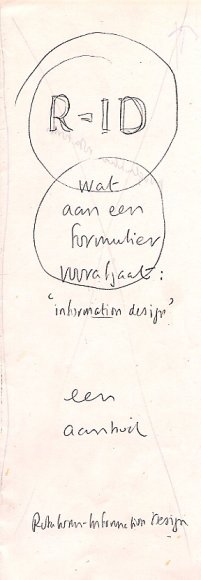 R-ID
wat
aan een
formulier
voorafgaat:
'information design'
een
aanhid
Information Design